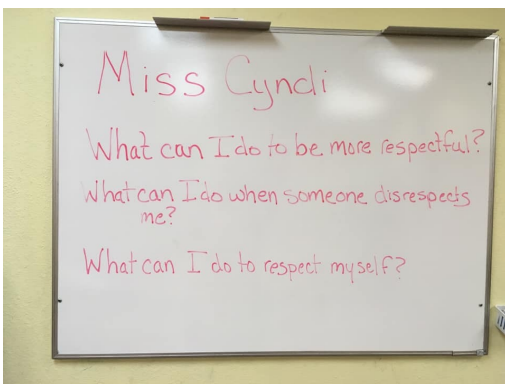 Miss Cyndi
What can I do to be more respectful?
What can I do when someone disrespects
me?
What can I do to respect myself?